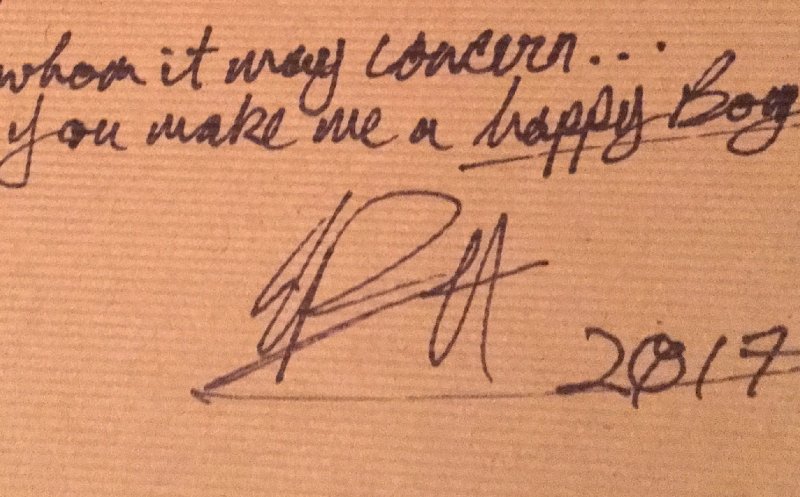 whom it may concern...
you make me a happy Boy
2017